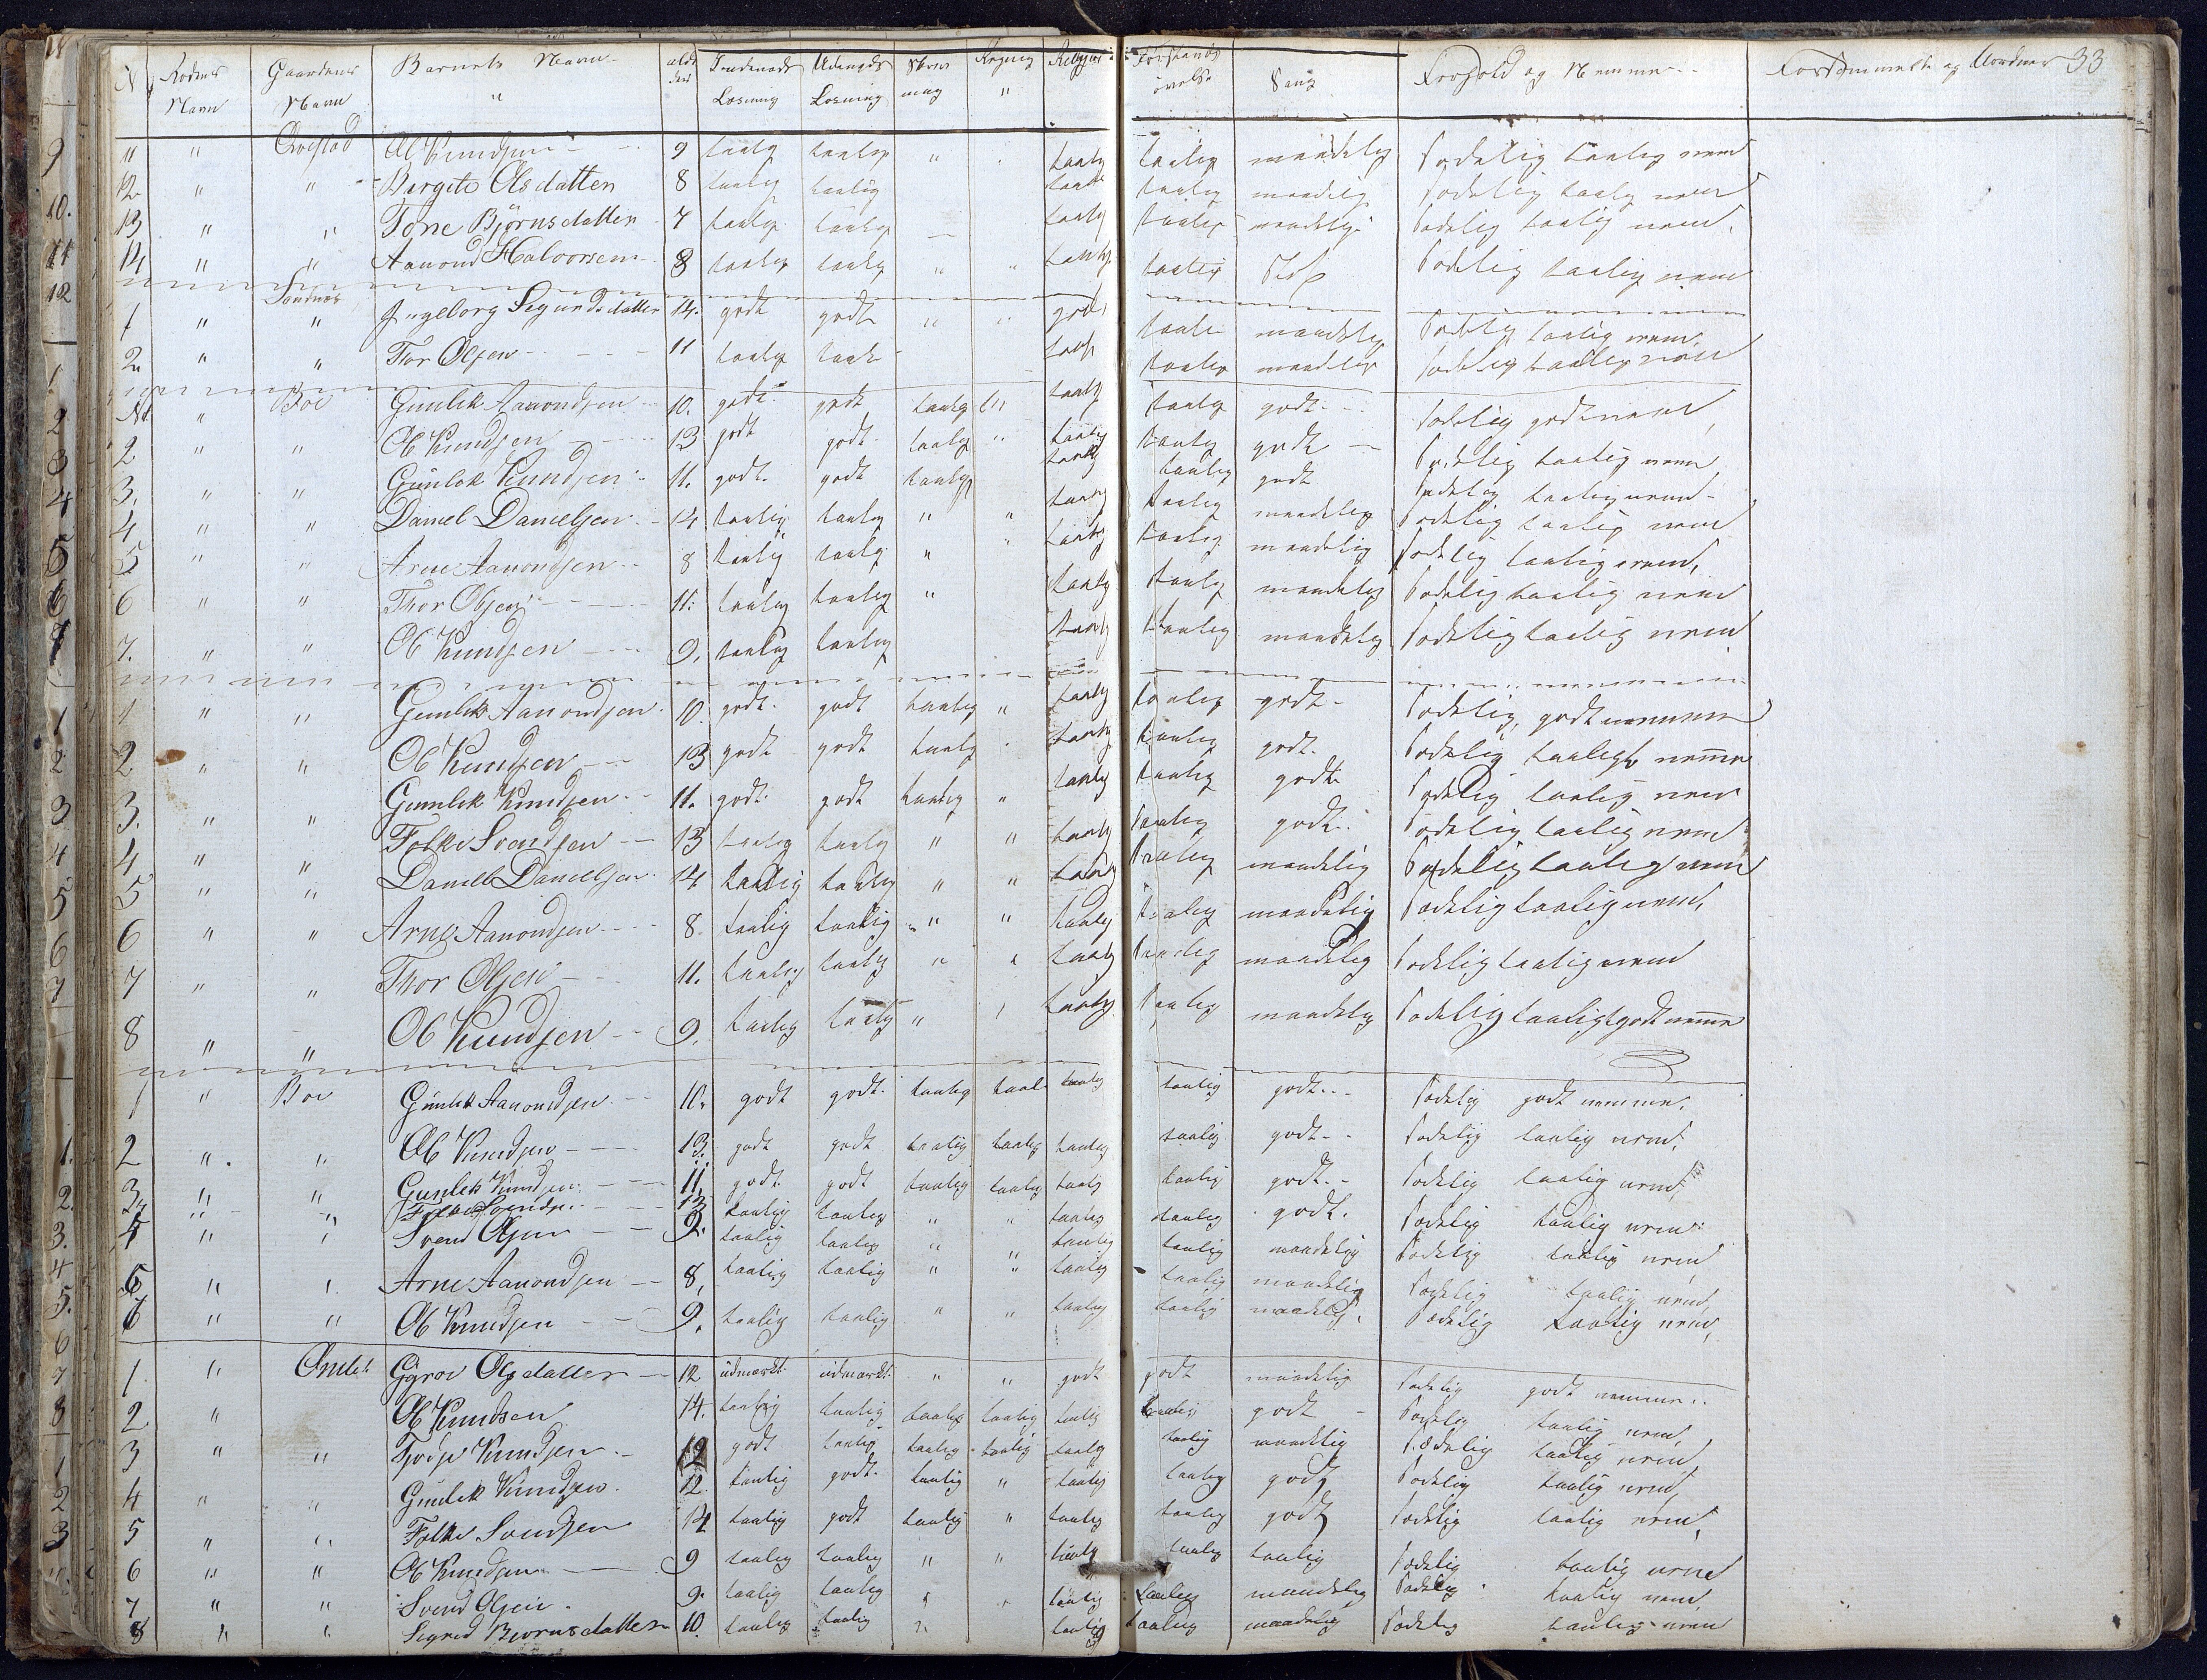 N Rodens Navn Gaardens Navn Barnets Navn alder Indenads Læsning Udenads Læsning Skrivning Regning Religion Forstands øvelse Sang Forhold og Nemme Forsømmelse og Uordner 33
11 " Qvestad Ol Knudsen 9 taalig taalig " " taalig taalig maadelig Sædelig taalig nem
12 " " Bergite Olsdatter 8 taalig taalig taalig taalig maadelig Sædelig taalig nem
13 " " Tone Bjørnsdatter 7 taalig taalig taalig taalig maadelig Sædelig taalig nem
14 " " Aanond Halvorsen 8 taalig taalig " " taalig taalig Sædelig taalig nem
Sandnes
1 " " Ingeborg Sigurdsdatter 14. godt godt " " godt taalig maadelig Sædelig taalig nem
2 " " Tor Olsen 11 taalig taalig taalig taalig maadelig Sædelig taalig nem
" Boe Gunlek Aanondsen 10. godt godt taalig taalig taalig godt Sædelig godt nem
2 " " Ol Knudsen 13 godt godt taalig " taalig taalig godt Sædelig taalig nem
3. " " Gunlek Knudsen 11. godt godt taalig taalig taalig godt Sædelig taalig nem
4 " " Daniel Danielsen 14 taalig taalig " " taalig taalig maadelig Sædelig taalig nem
5 " " Arne Aanondsen 8 taalig taalig " " taalig taalig maadelig Sædelig taalig nem
6 " " Thor Olsen 11. taalig taalig " taalig taalig maadelig Sædelig taalig nem
7. " " Ol Knudsen 9. taalig taalig taalig taalig maadelig Sædelig taalig nem
1 " " Gunlek Aanondsen 10 godt godt taalig " taalig taalig godt Sædelig godt nemme
2 " " Ol Knudsen 13 godt godt taalig taalig taalig godt Sædelig taaligt nemme
3. " " Gunlek Knudsen 11. godt godt taalig " taalig taalig godt Sædelig taalig nem
4 " " Folke Svendsen 13 taalig taalig " " taalig taalig godt Sædelig taalig nem
5 " " Daniel Danielsen 14 taalig taalig " " taalig taalig maadelig Sædelig taalig nem
6 " " Arne Aanondsen 8. taalig taalig " " taalig taalig maadelig Sædelig taalig nem
7 " " Thor Olsen 11. taalig taalig " " taalig taalig maadelig Sædelig taalig nem
8 " " Ol Knudsen 9. taalig taalig " taalig taalig maadelig Sædelig taaligt godt nemme
1 " Boe Gunlek Aanondsen 10. godt godt taalig taal taalig taalig godt Sædelig godt nemme
2 " " Ol Knudsen 13. godt godt taalig taalig taalig taalig godt Sædelig taalig nem
3 " " Gunlek Knudsen 11 godt godt taalig taalig taalig taalig godt Sædelig taalig nem
" " Folke Svendsen 13 taalig taalig " " taalig taalig godt. Sædelig taalig nem
4 " " Svend Olsen 9. taalig taalig " " taalig taalig maadelig Sædelig taalig nem
5 " " Arne Aanondsen 8. taalig taalig " " taalig taalig maadelig Sædelig taalig nem
6 " " Ol Knudsen 9. taalig taalig " " taalig taalig maadelig Sædelig taalig nem
1 " Gyroe Olsdatter 12 udmærkt udmærkt " " godt godt maadelig Sædelig godt nemme
2 " Ol Knudsen 14. taalig taalig taalig taalig taalig taalig godt Sædelig taalig nem
3 " " Knudsen 12 godt taalig taalig taalig taalig taalig maadelig Sædelig taalig nem
4 " " Gunlek Knudsen 12 taalig godt taalig " taalig taalig godt Sædelig taalig nem
5 " " Folke Svendsen 14 taalig godt taalig " taalig taalig godt Sædelig taalig nem
6 " " Ol Knudsen 9 taalig taalig " " taalig taalig taalig Sædelig taalig nem
7 " " Svend Olsen 9. taalig taalig " " taalig taalig maadelig Sædelig taalig nem
8 " " Sigrid Biørnsdatter 10. taalig taalig " taalig taalig maadelig Sædelig taalig nem